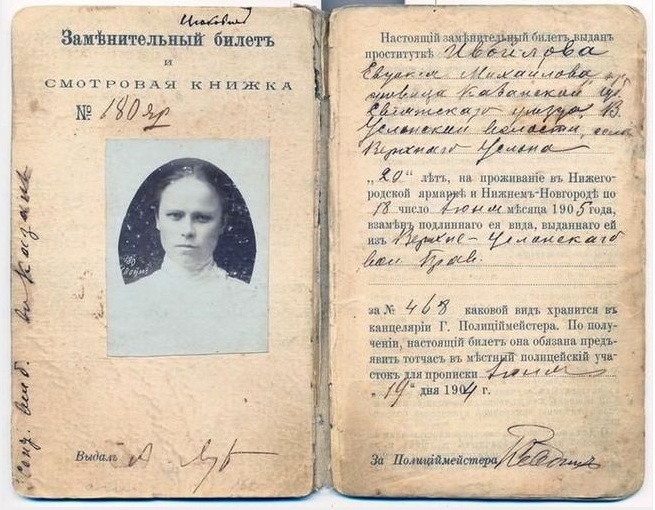 Замѣнительный билетъ
и
СМОТРОВАЯ КНИЖКА
№ 180 яр
180
Выдалъ
Настоящій замѣнительный билет выданъ
проституткѣ Ивойлова
Михаилова
Казанской
уѣзда, В.
Услонской волости, села
Верхняго Услона
„20“ лѣтъ, на проживаніе въ Нижего-
родской ярмаркѣ и Нижнемъ-Новгородѣ по
18 число Іюня мѣсяца 1905 года,
взамѣнъ подлиннаго ея вида, выданнаго ей
изъ Верхне-Услонскаго
вол Прав.
за № 468 каковой видъ хранится въ
канцеляріи Г. Полиціймейстера. По полу-
ченіи, настоящій билетъ она обязана предъ-
явить тотчасъ въ мѣстный полицейскій уча-
стокъ для прописки Іюня
„19“ дня 1904 г.
За Полиціймейстера